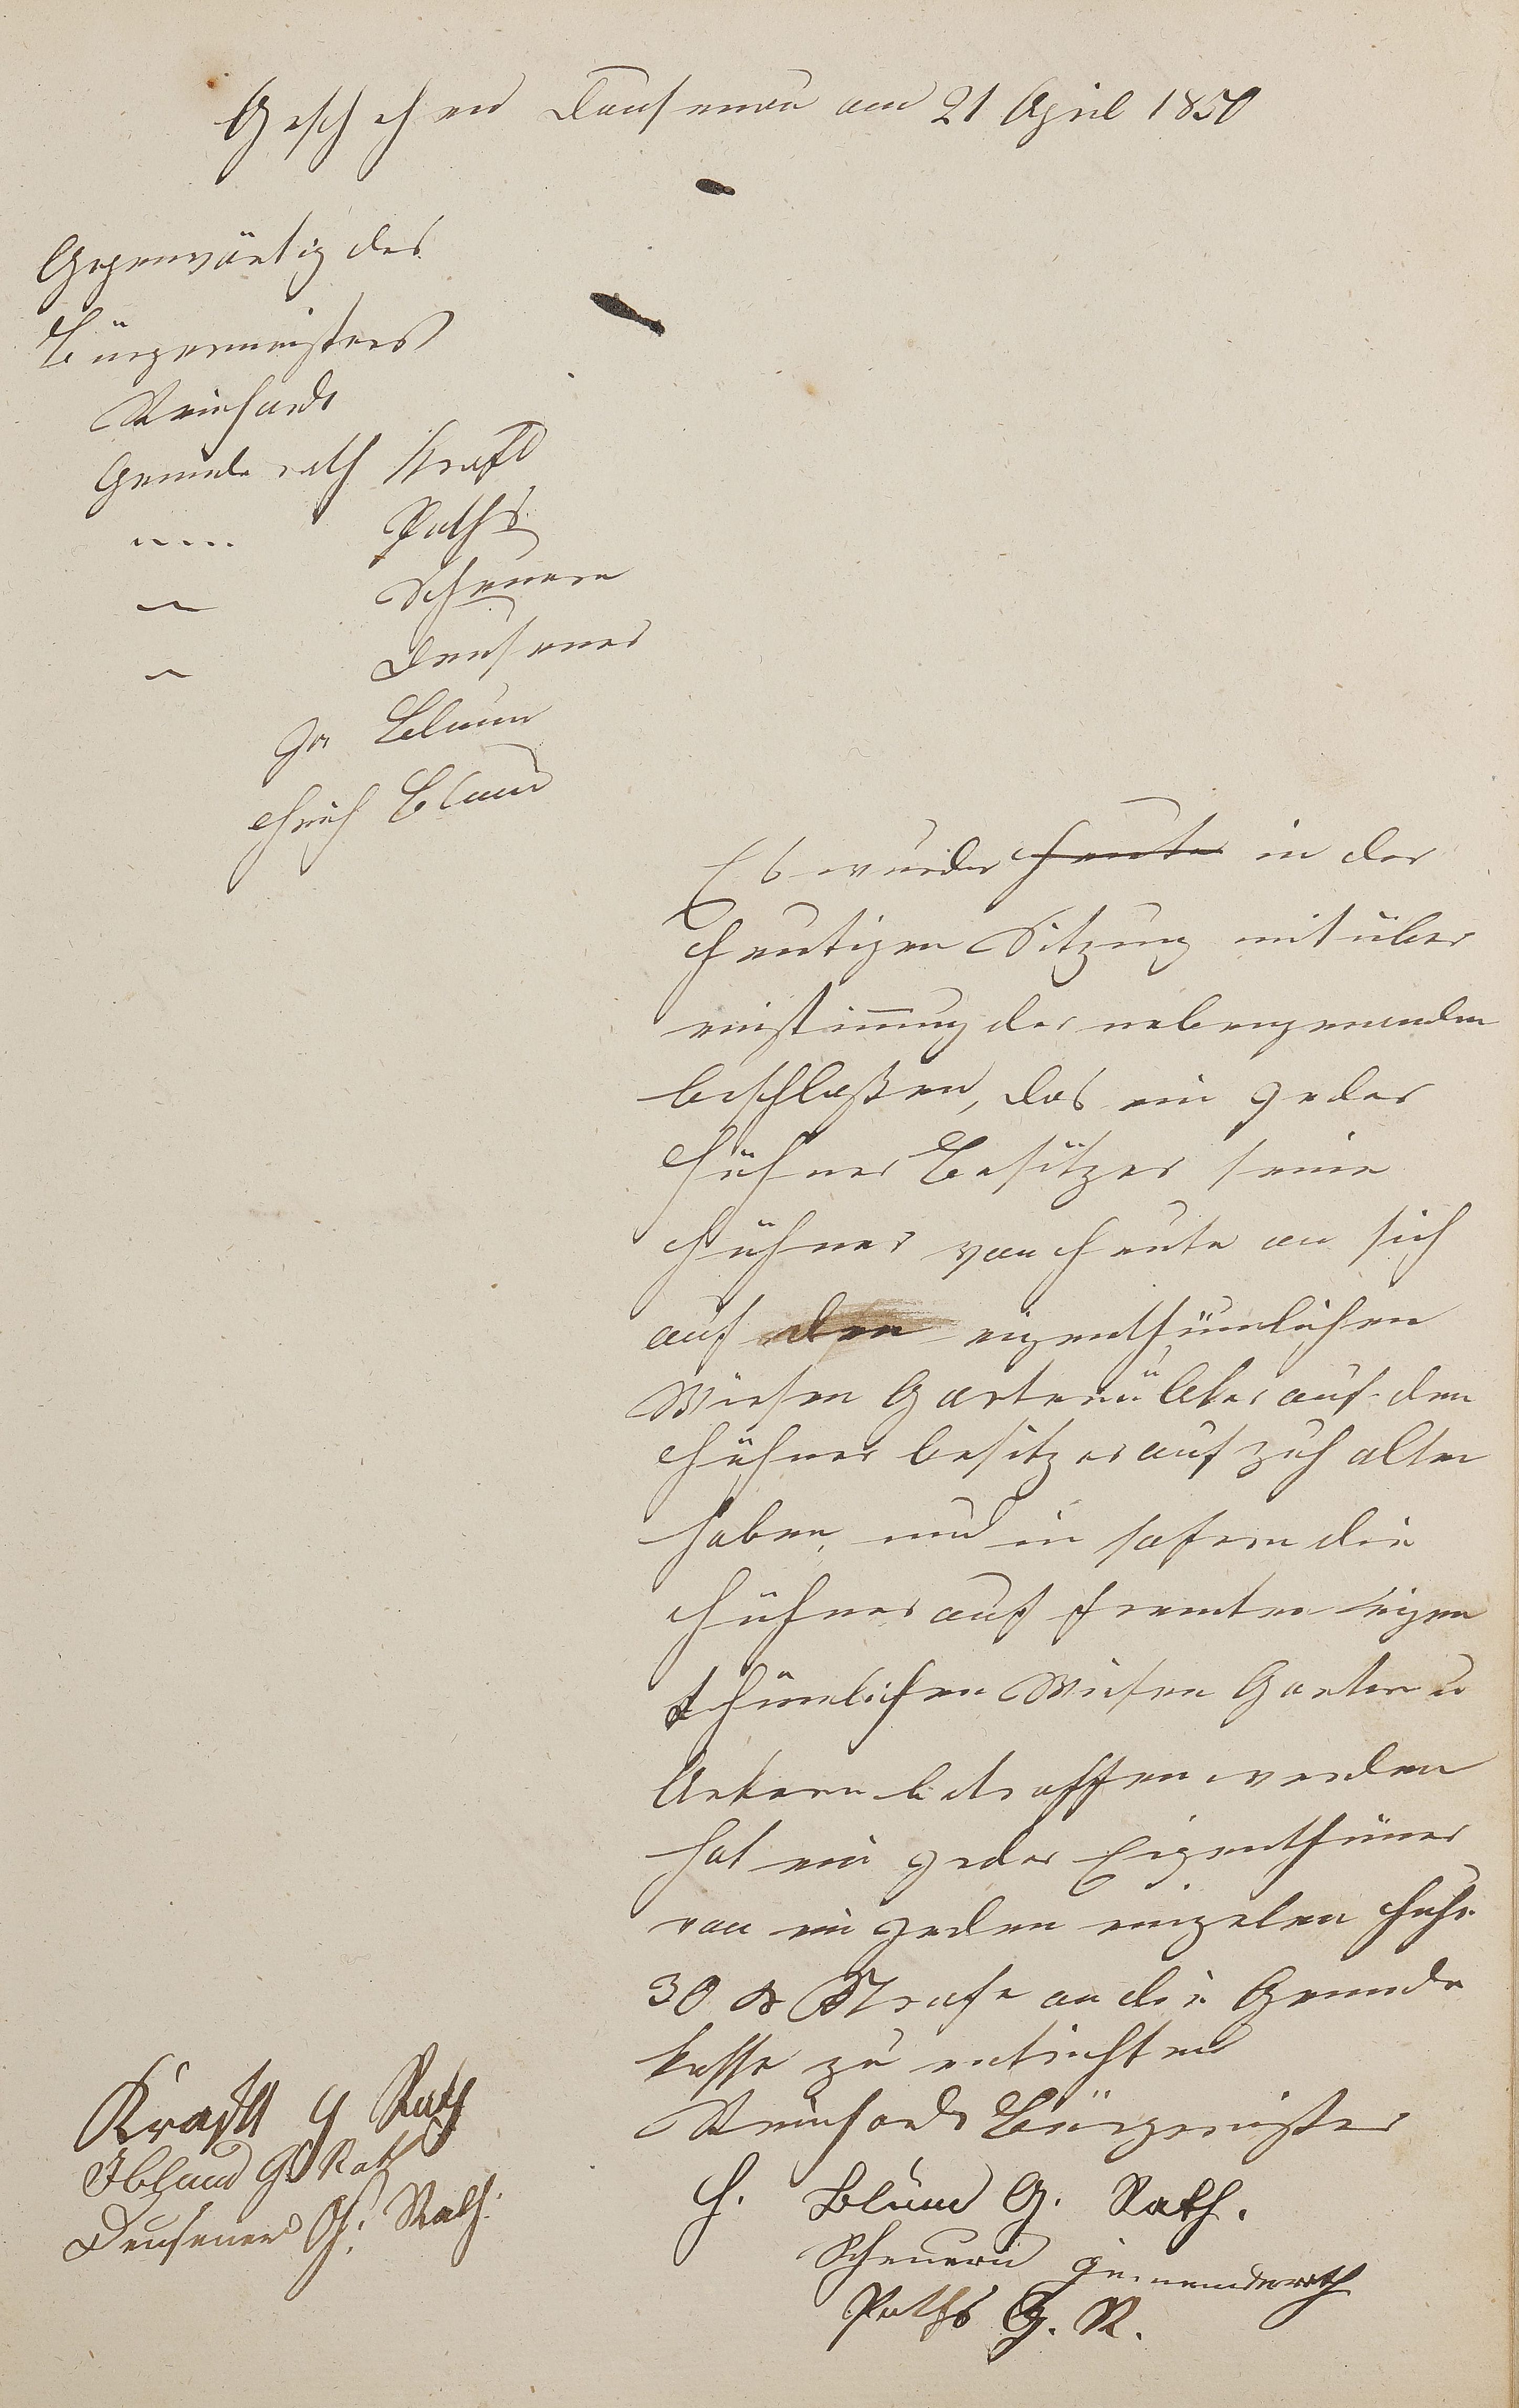 Geschehen Dausenau am 21 April 1850
Gegenwärtig des
Bürgermeisters
Reinhards
Gemeinde rath Kraft
" " Paths
" Scheuern
" Deusener
Ja Blum
Heinch Blum
Es wurde heute in der
heutigen Sitzung mit über
einstimung der nebengenanden
beschloßen, das ein jeder
Hühner Besitzer seine
Hühner von heute an sich
auf den eigenthümlichen
Wiesen Garten ü Aker auf den
Hühner besitzer auf zuhalten
haben, und in sofern die
Hühner auf fremten eigen
thümlichen Wiesen Garten u
Aekern betroffen werden
hat ein jeder Eigenthümer
von ein jeden einzelen Huhn
30 x Strafe an die Gemeinde
kasse zu entrichten
Reinhards Bürgermeister
H. Blum G. Rath.
Scheuern gemeinderath
Paths G. R.
Kraft G Rath
JBlum G. Rath
Deusener G. Rath.